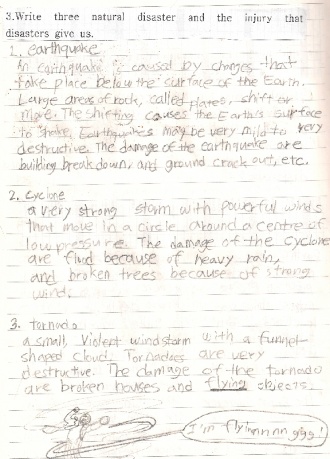 3.Write three natural disaster and the injury that
disasters give us.
1. earthquake
An earthquake is caused by changes that
take place below the surface of the Earth.
Large areas of rock, called plates, shift or
move. The shifting causes the Earth's surface
to shake. Earthquakes may be very mild to very
destructive. The damage of the earthquake are
building break down, and ground crack out, etc.
2. Cyclone
a very strong storm with powerful winds
that move in a circle around a centre of
low pressure. The damage of the cyclone
are flud because of heavy rain,
and broken trees because of strong
wind.
3. tornado
a small, violent windstorm with a funnel-
shaped cloud. Tornadoes are very
destructive. The damage of the tornado
are broken houses and flying objects.
I'm flyinnnnggg!